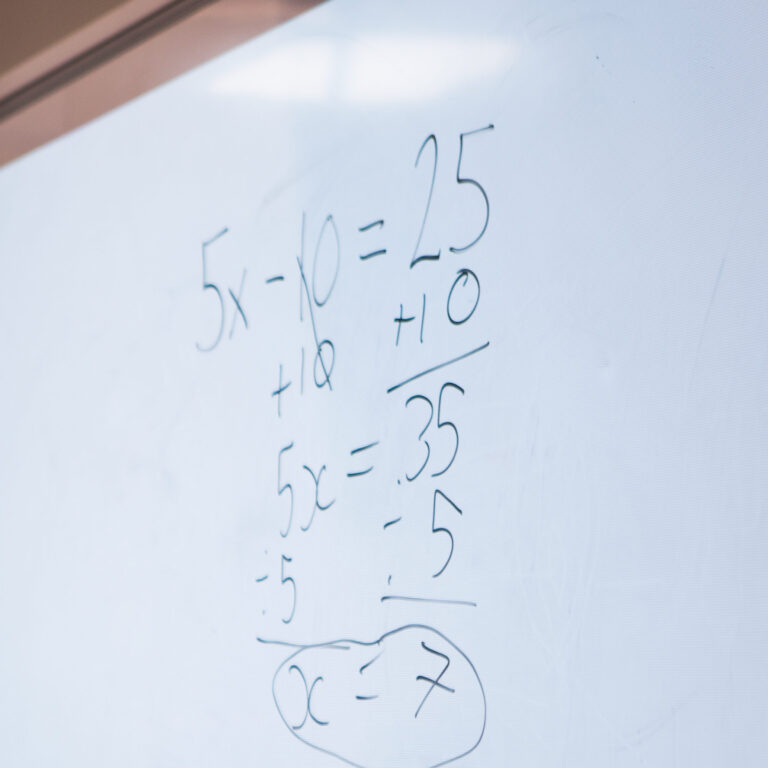 5x - 10 = 25
+10 +10
5x = 35
÷5 ÷5
x = 7